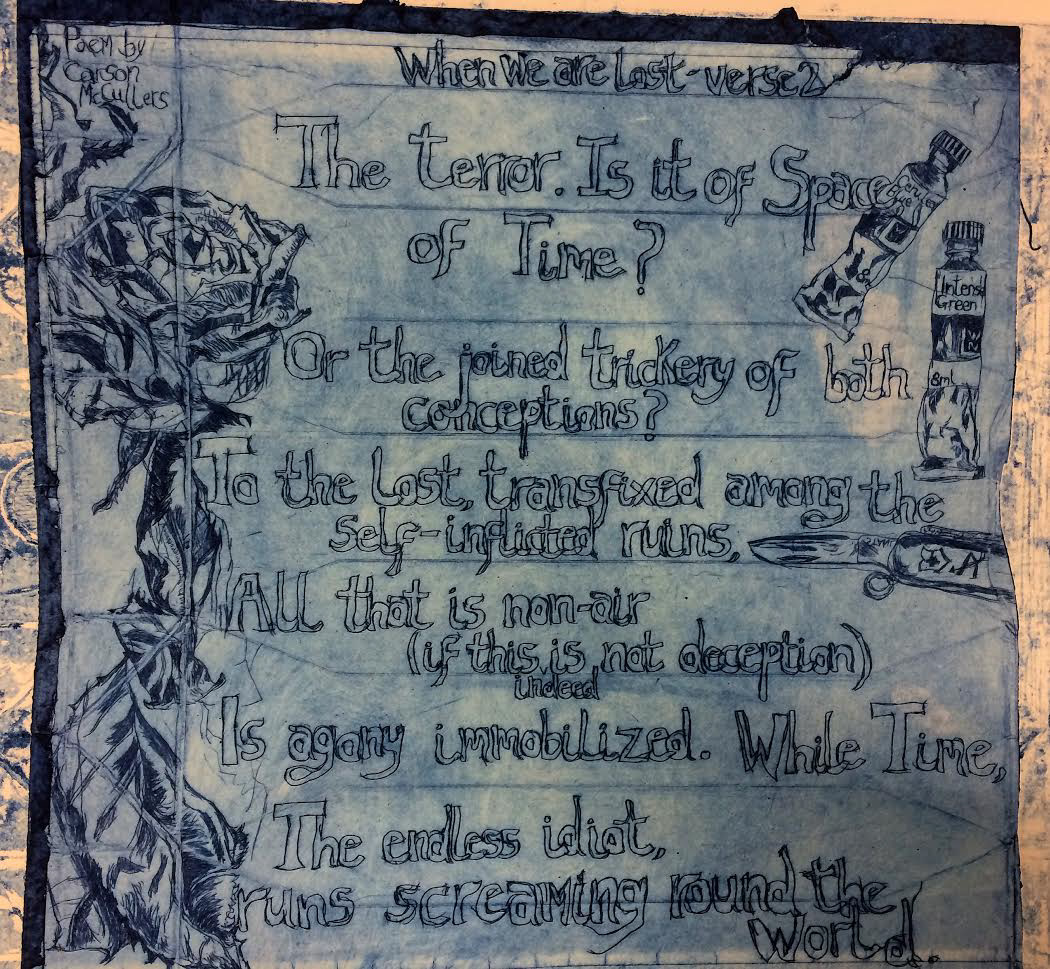 Poem by
Carson
McCullers
When we are Lost - verse 2
The terror. Is it of Space
of Time?
Or the joined trickery of both
conceptions?
To the Lost, transfixed among the
Self-inflicted ruins,
All that is non-air
(if this is not deception)
indeed
Is agony immobilized. While Time,
The endless idiot,
runs screaming round the
World.
Intense
Green
8ml